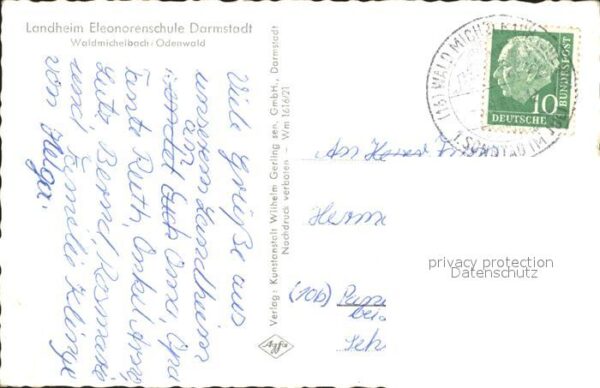 Landheim Eleonorenschule Darmstadt
Waldmichelbach/Odenwald
Viele Grüße aus
unserem Landheim
an
Oma, Opa
Tante Ruth, Onkel
Bernd, Rosmarie
und Familie Klinge
von Helga.
Verlag: Kunstanstalt Wilhelm Gerling sen. GmbH., Darmstadt
Nachdruck verboten - Wm 1616/21
Agfa
(16) WALD MICHELBACH
10
DEUTSCHE
BUNDESPOST
An
(10b)
bei
privacy protection
Datenschutz